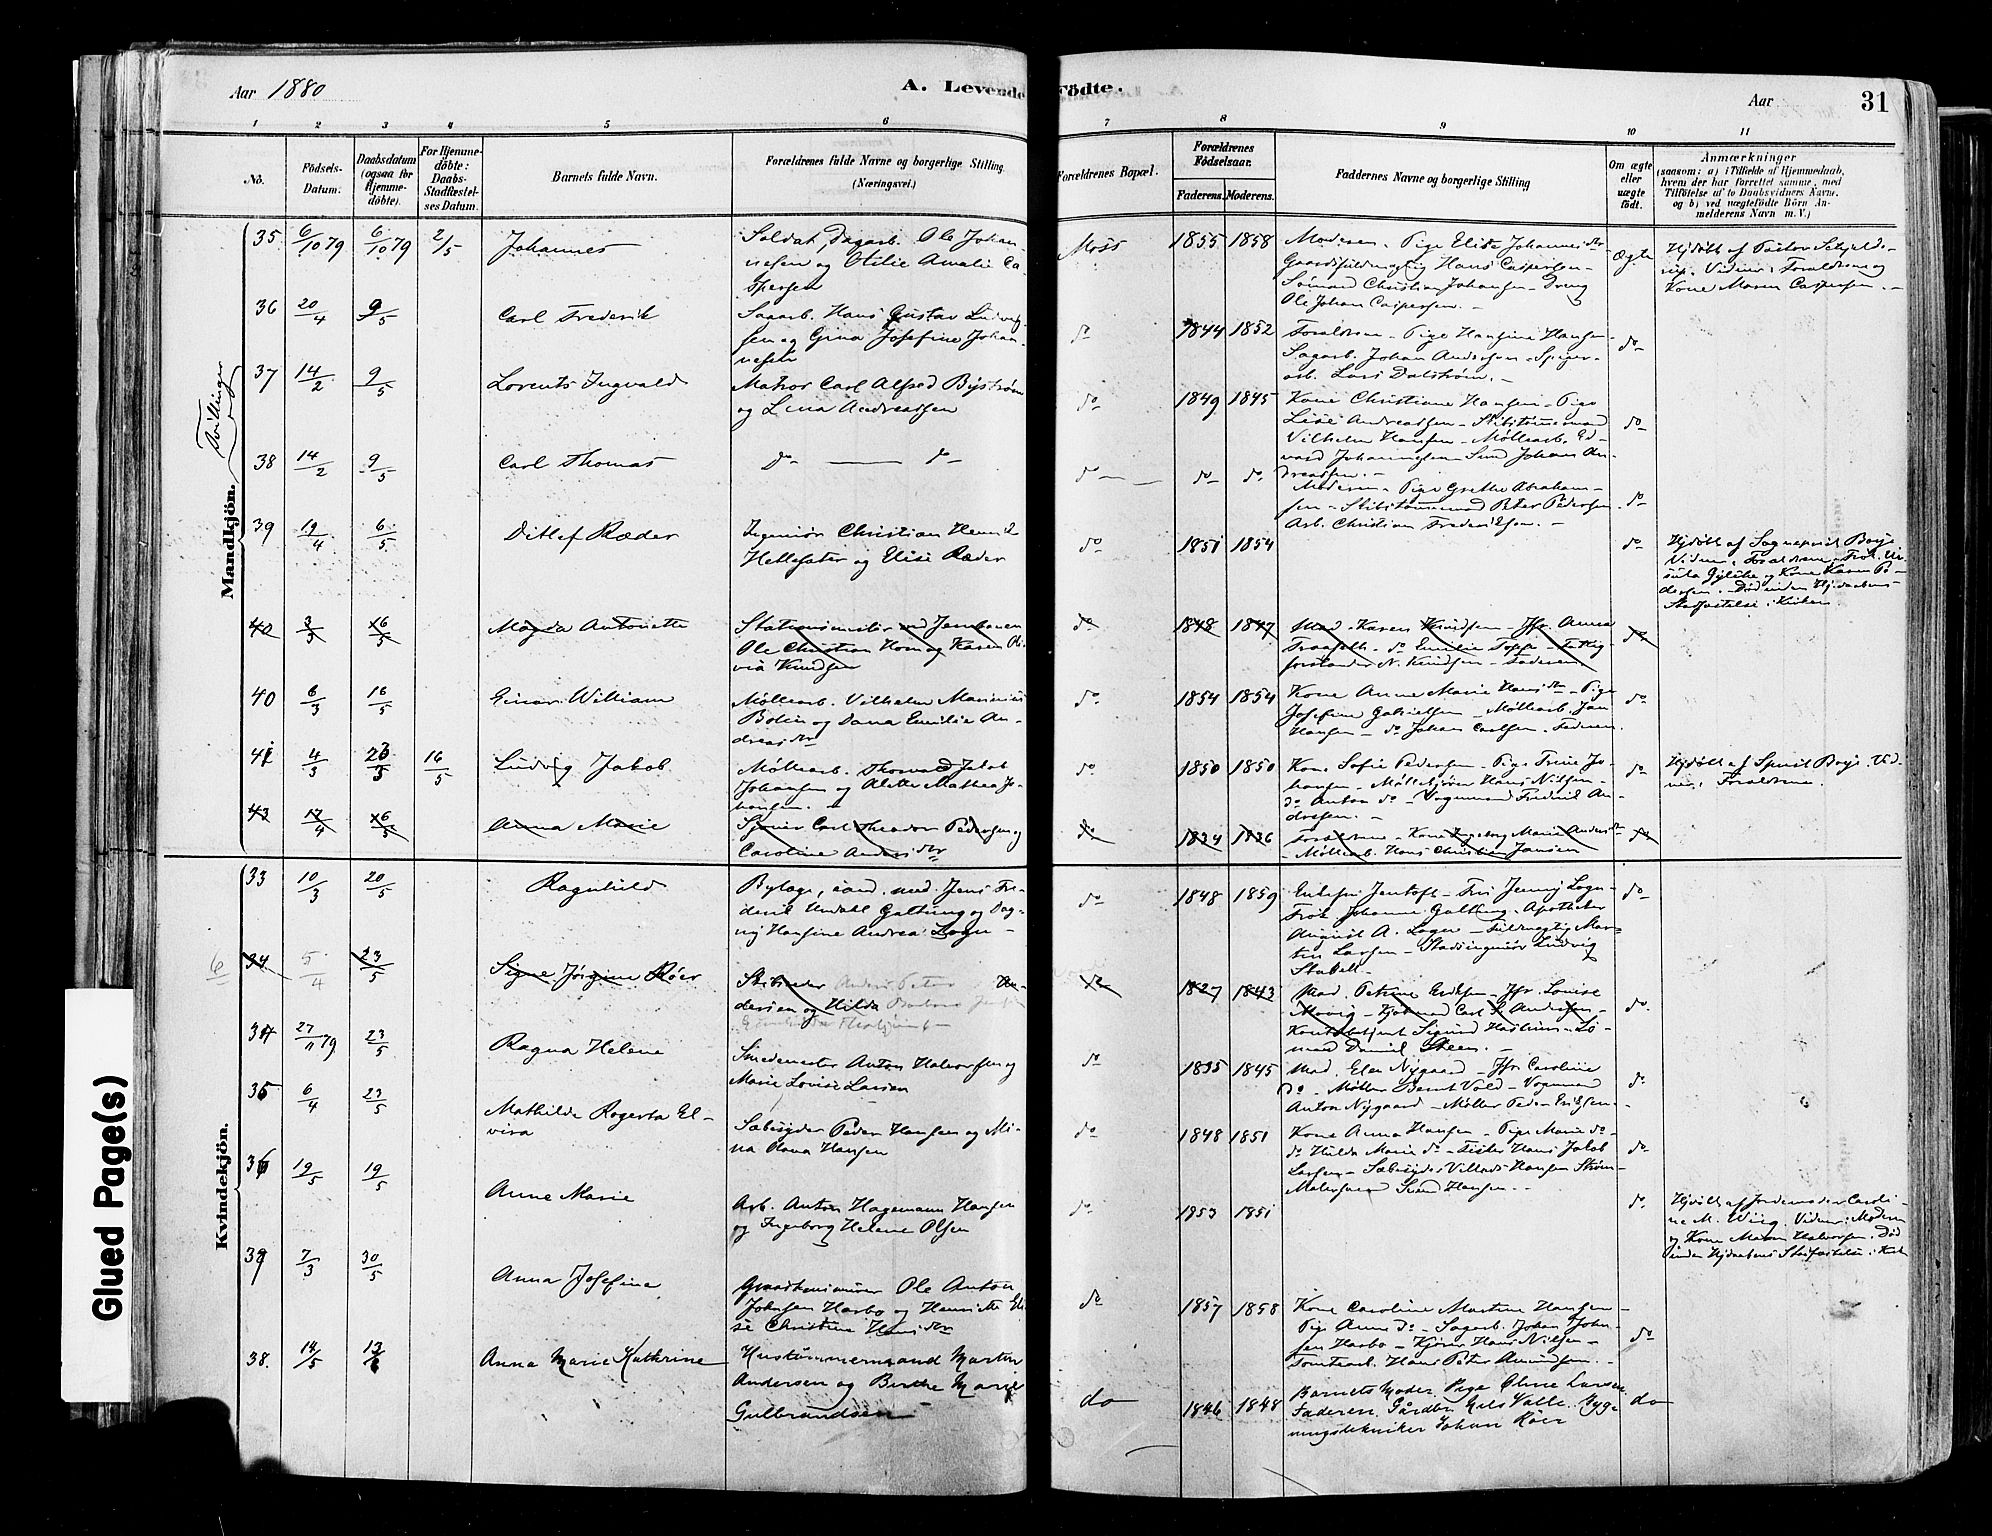 Aar 1880
A. Levende
Födte.
Aar
31
1 2 3 4 5 6 7 8 9 10 11
No.
Födsels-
Datum.
Daabsdatum
(ogsaa for
Hjemme-
döbte).
For Hjemme-
döbte:
Daabs-
Stadfæstel-
ses Datum.
Barnets fulde Navn.
Forældrenes fulde Navne og borgerlige Stilling
(Næringsvei.)
Forældrenes Bopæl.
Forældrenes
Födselsaar.
Faderens. Moderens.
Faddernes Navne og borgerlige Stilling
Om ægte
eller
uægte
födt.
Anmærkninger
(saasom: a) i Tilfælde af Hjemmedaab,
hvem der har forrettet samme, med
Tilföielse af to Daabsvidners Navne,
og b) ved uægtefödte Börn An-
melderens Navn m. V.)
Mandkjön.
Tvillinger
35 6/10 79 6/10 79 2/5 Johannes
Soldat, Dagarb. Ole Johan-
nesen og Otilie Amalie Ca-
spersen
Moss 1855 1858
Moderen - Pige Elise Johannesdtr
Gaardsfuldmægtig Hans Caspersen -
Sömand Christian Johansen - Dreng
Ole Johan Caspersen. -
Ægte
Hjdöbt af Pastor Schjelde-
rup. Vidner: Forældrene og
Kone Maren Caspersen. -
36 20/4 9/5 Carl Frederik
Sagarb. Hans Gustav Ludvig-
sen og Gina Josefine Johan-
nesen
do 1844 1852
Forældrene - Pige Hansine Hansen -
Sagarb. Johan Andersen - Spiger-
arb. Lars Dalström. -
do
37 14/2 9/5 Lorents Ingvald
Matros Carl Alfred Byström
og Lina Andreassen
do 1849 1845
Kone Christiane Hansen - Pige
Lise Andreassen - Skibstömmermand
Vilhelm Hansen - Möllearb. Ed-
vard Johannesen - Smed Johan An-
dreassen. -
do
38 14/2 9/5 Carl Thomas
do - do -
do - do - do
Moderen - Pige Grethe Abraham-
sen - Skibstömmermand Peter Pedersen
Arb. Christian Frederiksen. -
do
39 19/4 6/5 Ditlef Ræder
Ingeniör Christian Henrik
Hellesater og Elise Ræder
do 1851 1854
do
Hjdöbt af Sogneprest Borje
Vidner: Forældrene - Frök. Ur-
sula Gylche og Kone Karen Pe-
dersen. - Död inden Hjdaabens
Stadfæstelse i Kirken.
40 3/3 16/5 Magda Antonette
Stationsmester ved Jernbanen
Ole Christian Horn og Karen Oli-
via Knudsen
do 1848 1847
Mad. Karen Knudsen - Jfr. Anna
Fraafelt - do Emilie Toppe -
forstander N. Knudsen - Faderen
do
40 6/3 16/5 Einar William
Möllearb. Vilhelm Marinius
Bolin og Dana Emilie An-
dreasdtr
do 1854 1854
Kone Anne Marie Hansdtr - Pige
Josefine Gabrielsen - Möllearb. Jan
Hansen - do Johan Carlsen. Faderen
do
41 4/3 23/3 16/5 Ludvig Jakob
Möllearb. Thorvald Jakob
Johansen og Alette Mathea Jo-
hansen. -
do 1850 1850
Kone Sofie Pedersen - Pige Trine Jo-
hansen - Möllekjörer Hans Nilsen -
do Anton do - Vognmand Fredrik An-
dresen. -
do
Hjdöbt af Sprest Borje. Vid-
ner: Forældrene.
43 17/4 16/5 Anna Marie
Carl Theodor Pedersen og
Caroline Andersdtr
do 1834 1836
Forældrene - Kone Ingeborg Marie Andersdtr
- Möllearb. Hans Christian Jansen
do
Kvindekjön.
33 10/3 20/5 Ragnhild
Bylæge, cand. med. Jens Fre-
derik Undall Galtung og Dag-
ny Hansine Andrea Logn -
do 1848 1859
Enkefru Jentoft - Fru Jenny Logn -
Frök. Johanne Galtung - Apotheker
August A. Logn - Fuldmægtig Mar-
tin Larsen - Stadsingeniör Ludvig
Stabell. -
do
6 34 5/4 23/5 Signe Jörgine Röer
Anders Petter An-
dersen og Hilda Barbara
do 1827 1843
Mad. Petrine Eriksen - Jfr. Louise
Movig - Kjöbmand Carl S. Andersen -
Kontorbetjent Sigurd - Sö-
mand Daniel Steen. -
do
34 27/11 79 23/5 Ragna Helene
Smedemester Anton Halvorsen og
Marie Lovise Larsen
do 1835 1845
Mad. Elen Nygaard - Jfr. Caroline
do - Möller Bernt Vold - Vognmand
Anton Nygaard - Möller Peder Eriksen. -
do
35 6/4 23/5 Mathilde Rogerta El-
vira
Sæbesyder Peder Hansen og Mi-
na Olava Hansen
do 1848 1851
Kone Anna Hansen - Pige Marie do -
do Hulda Marie do - Fisker Hans Jakob
Larsen - Sæbesyder Villads Hansen Ström -
Malersvend Svend Hansen. -
do
36 19/5 19/5 Anne Marie
Arb. Anton Hagemann Hansen
og Ingeborg Helene Olsen
do 1853 1851
do
Hjdöbt af Jordemoder Caroli-
ne M. Wiig. Vidner: Moderen
og Kone Maren Halvorsen. Död
inden Hjdaabens Stadfæstelse i Kirk
37 7/3 30/5 Anna Josefine
Ole Anton
Johnsen Harbo og Henriette Eli-
se Christine Hansdtr
do 1857 1858
Kone Caroline Martine Hansen -
Pige Anne do - Sagarb. Johan John-
sen Harbo - Kjörer Hans Nilsen -
Tomtearb. Hans Peter Amundsen. -
do
38. 14/5 13/6 Anna Marie Kathrine
Hustömmermand Martin
Andersen og Berthe Marie
Gulbrandsen
do 1846 1848
Barnets Moder. Pige Oline Larsen.
Faderen. Gårdbr. Nils Valle. Byg-
ningstekniker Johan Röer
do
Glued Page(s)